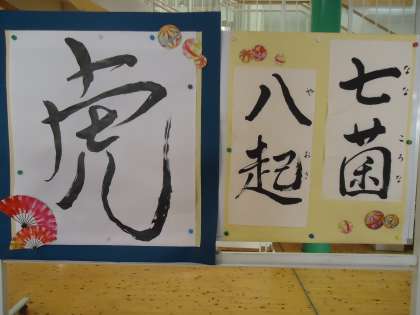 虎
七菌
なな
ころな
八起
や
おき